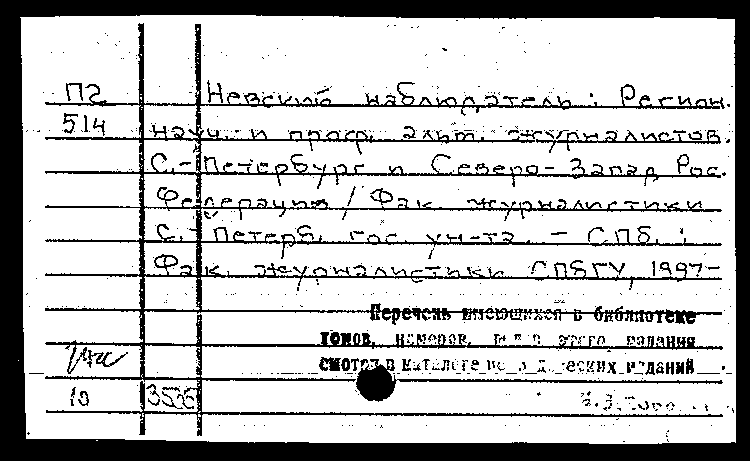 П2 Невский наблюдатель : Регион.
514 науч. и проф. альм. журналистов
С.-Петербурга и Северо-Запад Рос.
Федерации / Фак. журналистики
С.-Петерб. гос. ун-та. - СПб. :
Фак. журналистики СПбГУ, 1997-
Перечень имеющихся в библиотеке
томов, номеров, и т.п этого издания
смотри в каталоге периодических изданий
10 3535